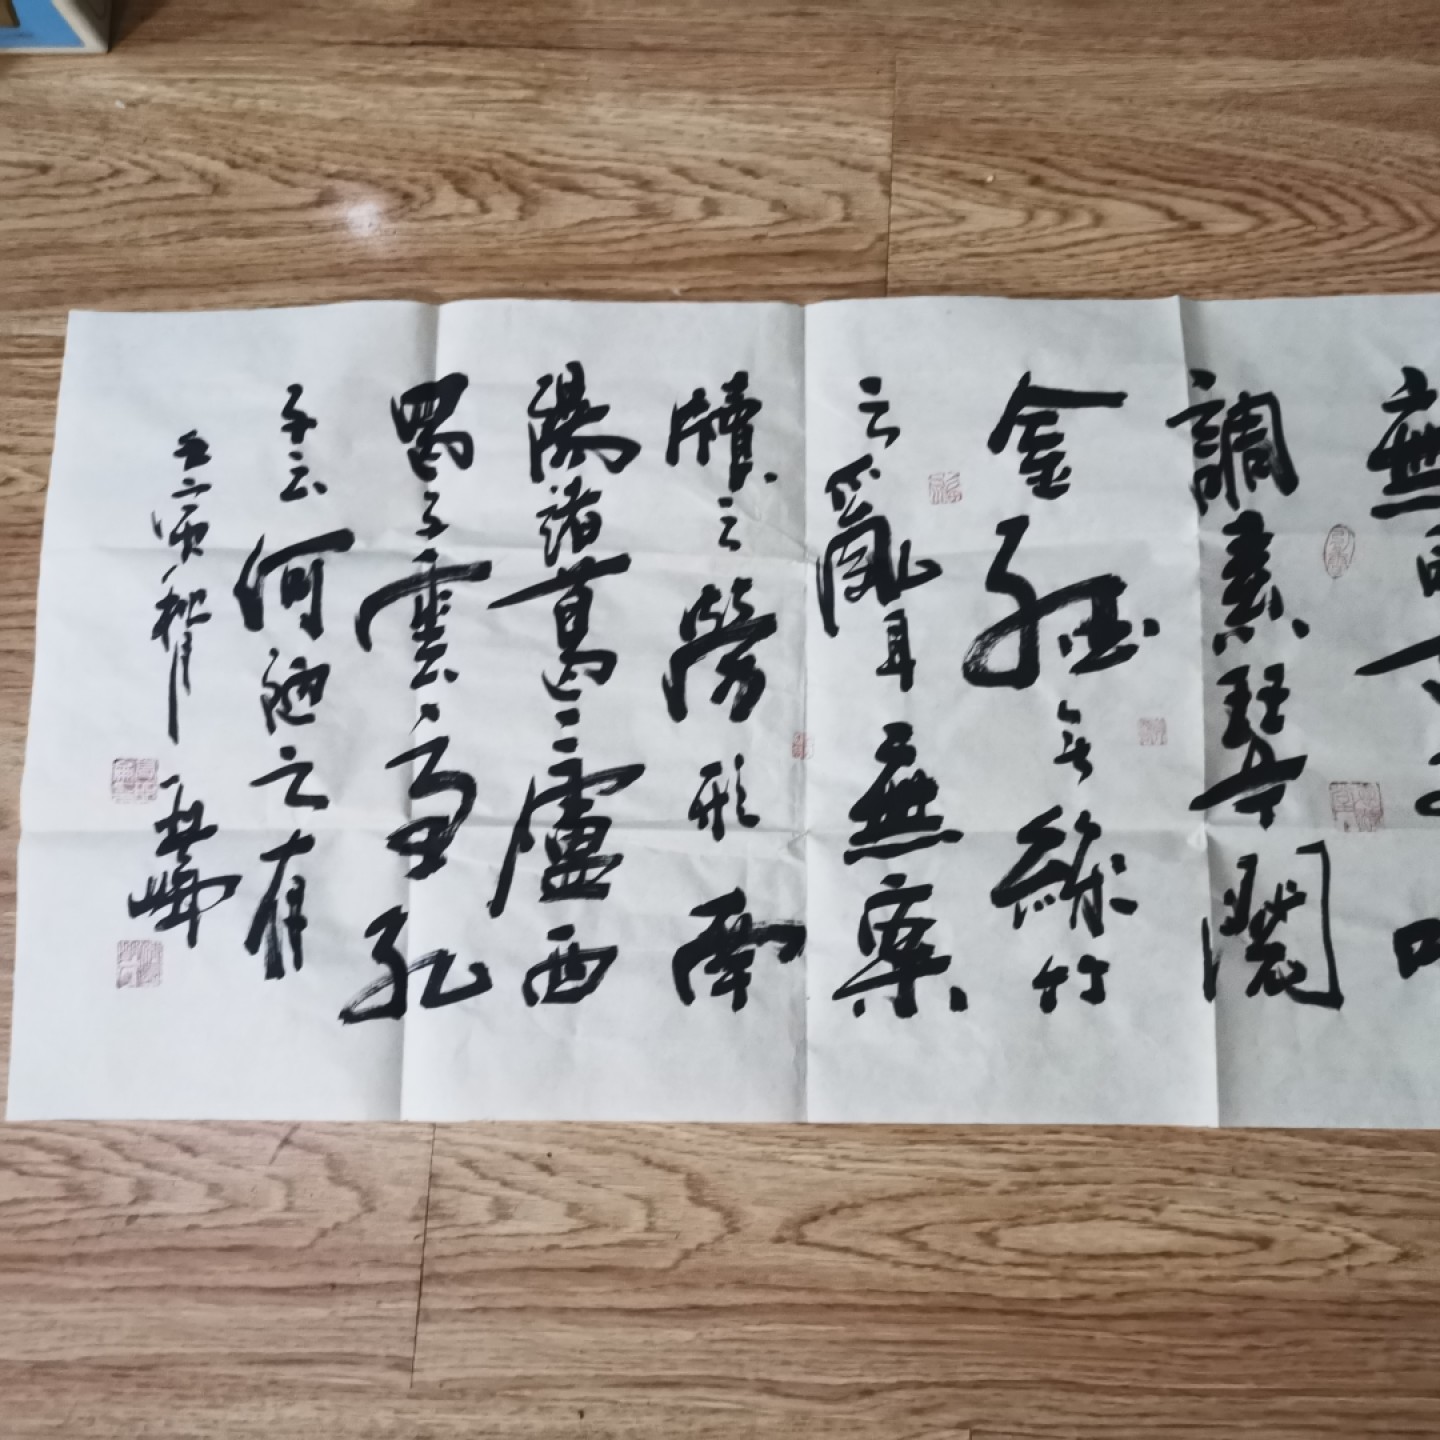 無白丁可以
調素琴閱
金經無絲竹
之亂耳無案
牘之勞形南
陽諸葛廬西
蜀子雲亭孔
子云何陋之有
壬寅